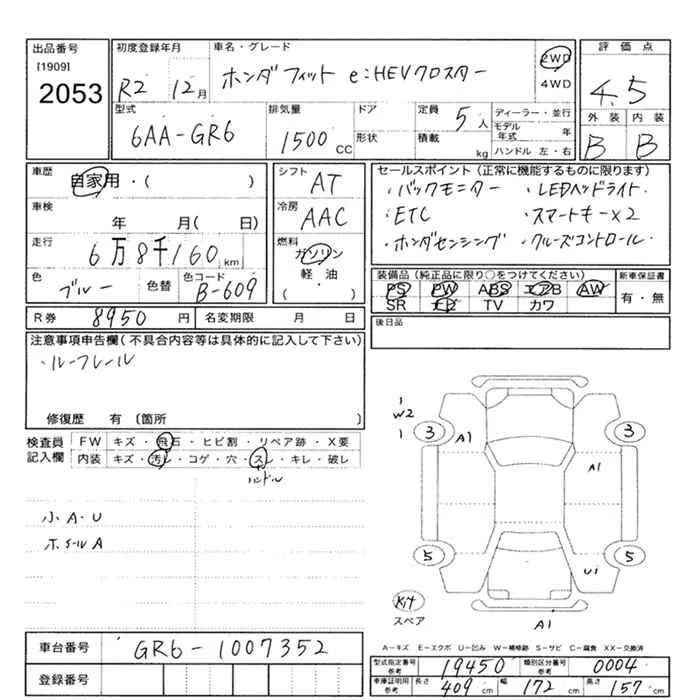 出品番号
[1909]
2053
初度登録年月
R2 12月
車名・グレード
ホンダフィット e:HEVクロスター
2WD
4WD
評価点
4.5
外装 内装
B B
型式
6AA-GR6
排気量
1500 CC
ドア
形状
定員 5人
積載 kg
ディーラー・並行
モデル年式 年
ハンドル 左・右
車歴
自家用・( )
車検
年 月( 日)
走行
6万8千160 km
色
ブルー 色替
色コード
B-609
シフト
AT
冷房
AAC
燃料
ガソリン
軽油
( )
セールスポイント(正常に機能するものに限ります)
・バックモニター ・LEDヘッドライト
・ETC ・スマートキーX2
・ホンダセンシング ・クルーズコントロール
装備品(純正品に限り○をつけてください)
PS PW ABS エアB AW
SR ナビ TV カワ
新車保証書
有・無
R券 8950円
名変期限 月 日
後日品
注意事項申告欄(不具合内容等は具体的に記入して下さい)
・ルーフレール
修復歴 有 〔箇所 〕
検査員
記入欄
FW キズ・飛石・ヒビ割・リペア跡・X要
内装 キズ・汚レ・コゲ・穴・スレ・キレ・破レ
ハンドル
小A・U
ホイールA
W2
3
A1
3
A1
5
5
U1
Kit
スペア
A1
A-キズ E-エクボ U-凹み W-補修跡 S-サビ C-腐食 XX-交換済
車台番号 GR6-1007352
登録番号
型式指定番号
参考
19450
類別区分番号
参考
0004
車庫証明用
参考
長さ 409 cm
幅 172 cm
高さ 157 cm